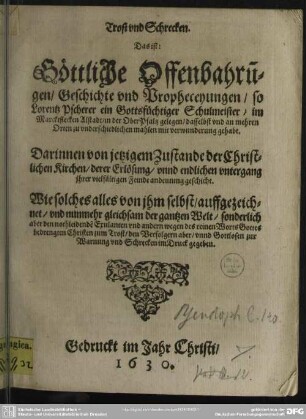 Trost vnd Schrecken.
Das ist:
Göttliche Offenbahrũ-
gen/ Geschichte vnd Propheceyungen/ so
Lorentz Pscherer ein Gottsfüchtiger Schulmeister/ im
Marcktflecken Altstadt/ in der OberPfaltz gelegen/ daselbst vnd an mehren
Orten zu vnderschiedlichen mahlen mit verwunderung gehabt.
Darinnen von jetzigem Zustande der Christ-
lichen Kirchen/ derer Erlösung/ vnnd endlichen vntergang
ihrer vielfältigen Feinde andeutung geschicht.
Wie solches alles von jhm selbst/ auffgezeich-
net/ vnd nunmehr gleichsam der gantzen Welt/ sonderlich
aber den nothleidende Exulanten vnd andern wegen des reinen Worts Gottes
bedrengten Christen zum Trost/ den Verfolgern aber/ vnnd Gottlosen zur
Warnung vnd Schrecken im Druck gegeben.
Gedruckt im Jahr Christi/
1630.